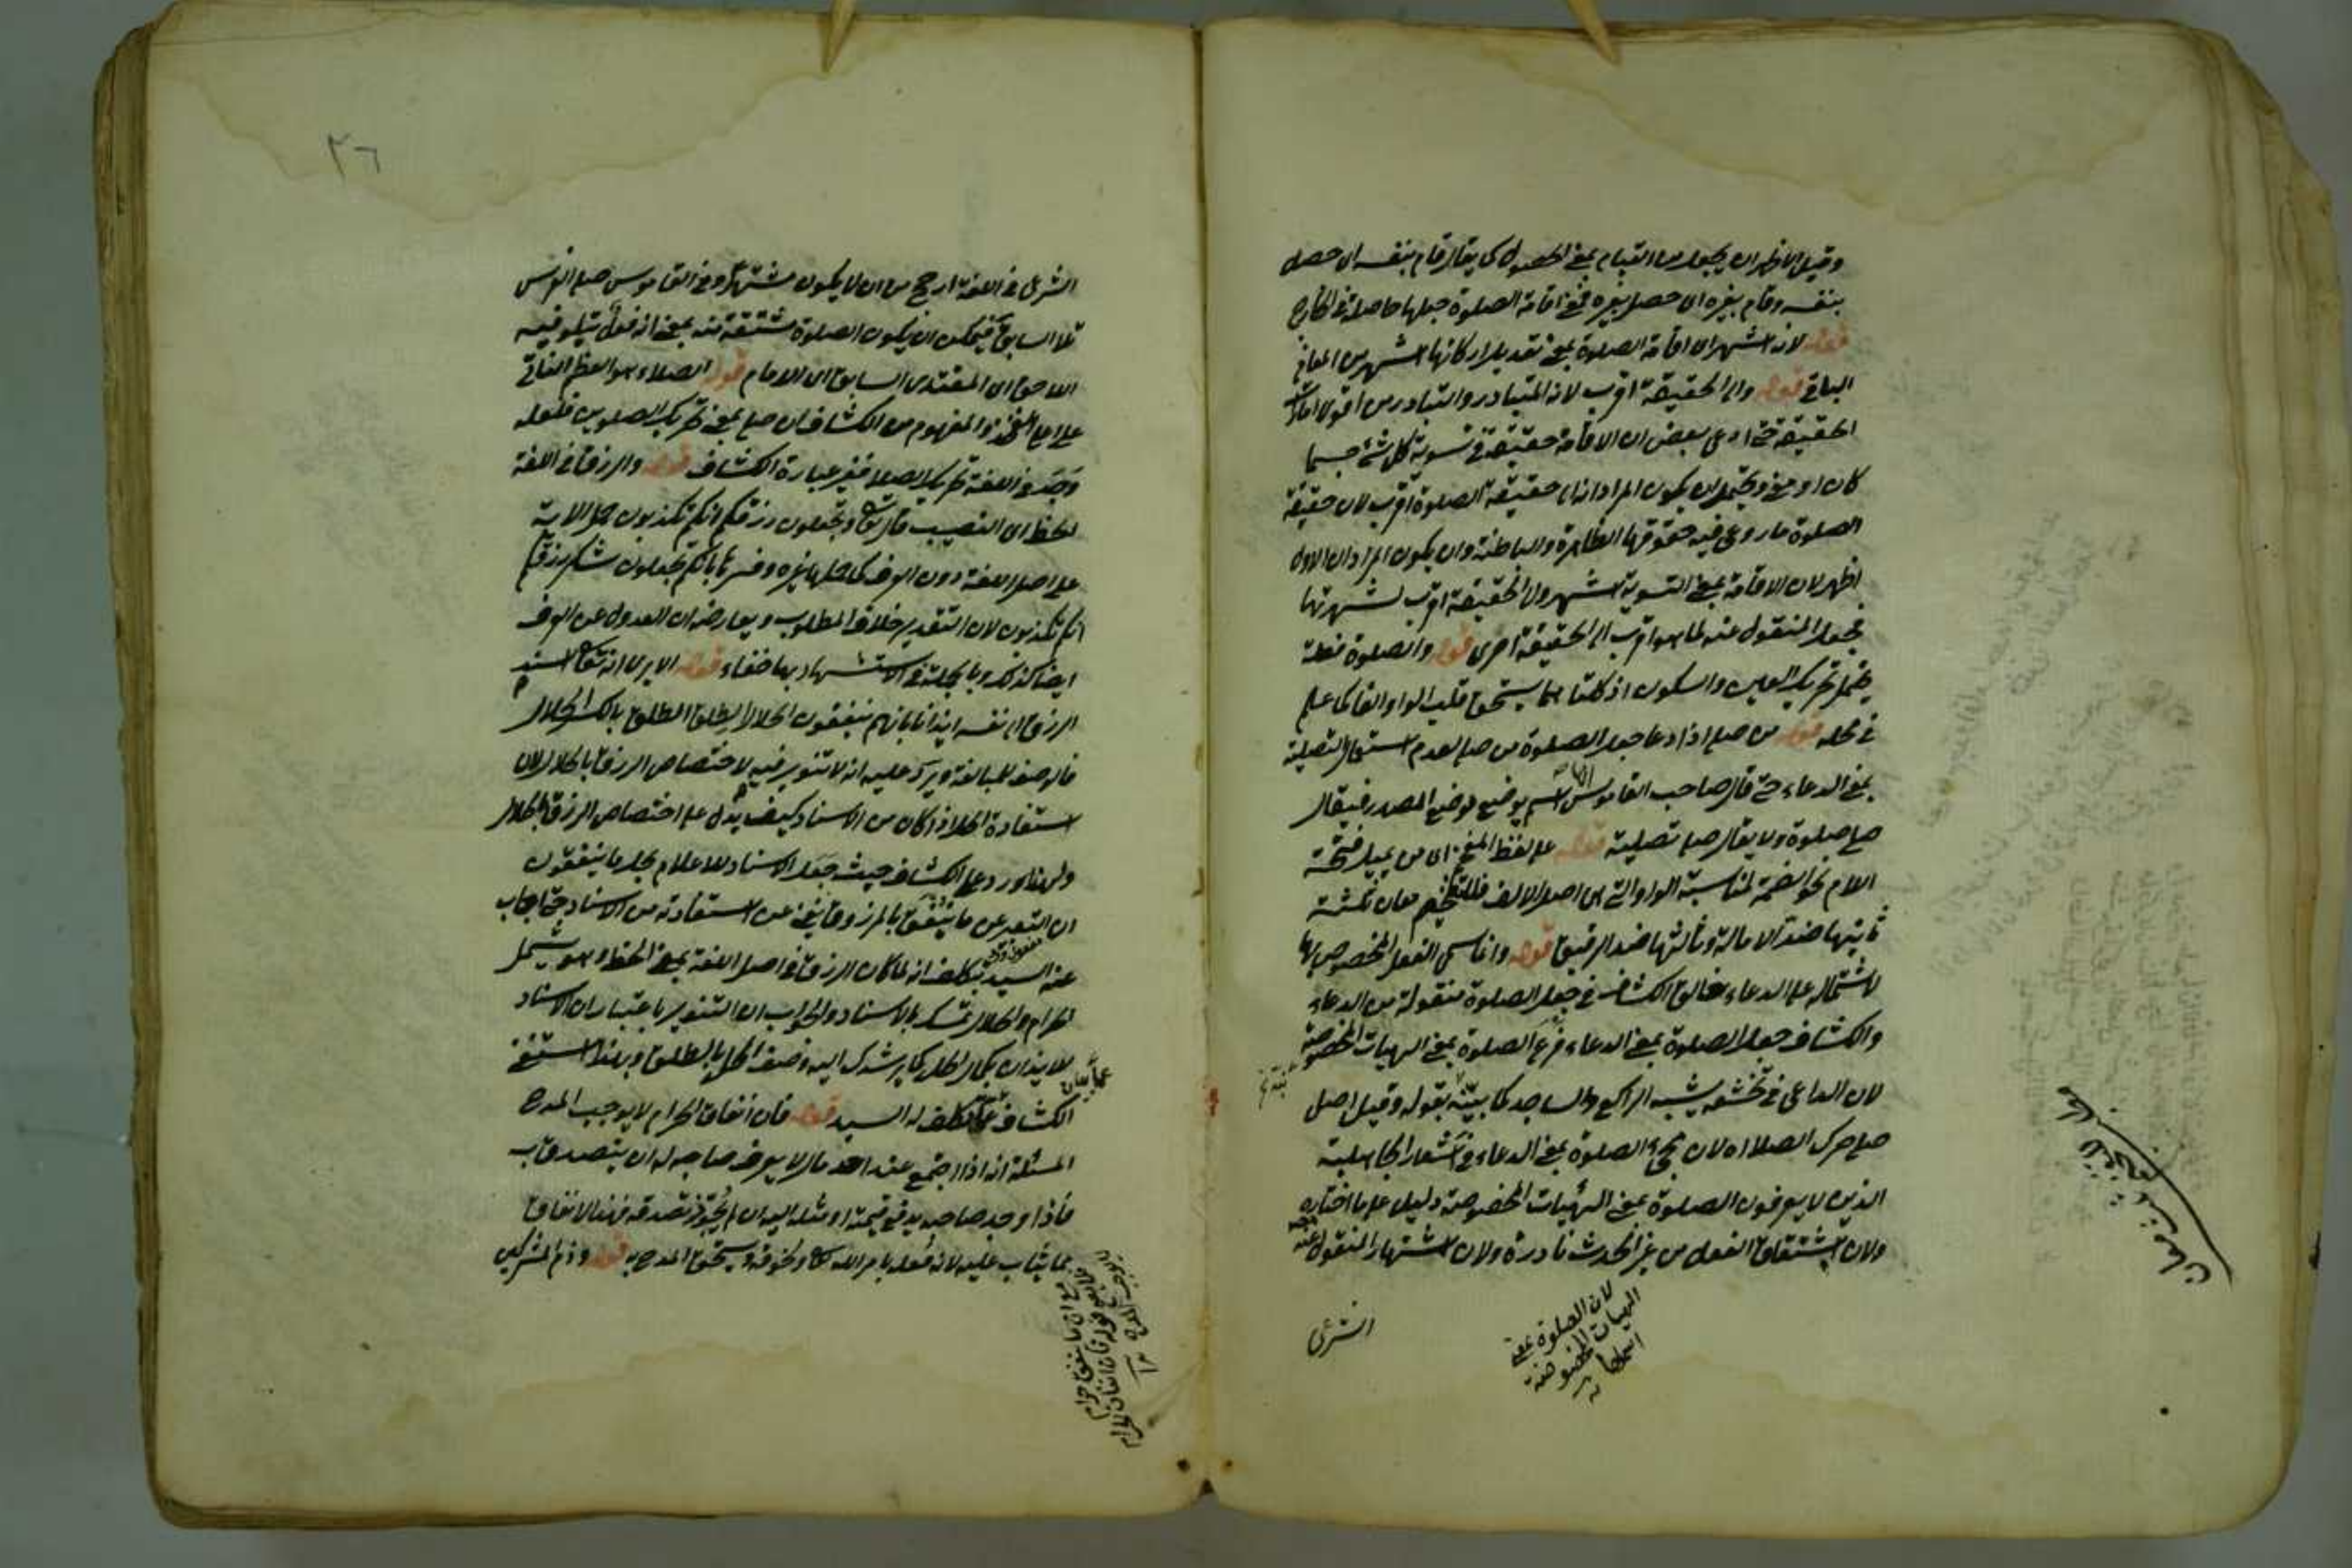 وقيل الاظهر ان يجعل من القيام بمعنى الحصول كما يقال قام بنفسه اى حصل
بنفسه وقام بغيره اى حصل بغيره فمعنى اقامة الصلوة جعلها حاصلة فى الخارج
قوله لانه اشهر اى اقامة الصلوة بمعنى تعديل اركانها اشهر من المعانى
الباقى قوله والى الحقيقة اقرب لانه المتبادر والتبادر من اقوى امارات
الحقيقة حتى ادعى بعض ان الاقامة حقيقة فى تسوية كل شئ جسما
كان او معنى ويحتمل ان يكون المراد انه الى حقيقة الصلوة اقرب لان حقيقة
الصلوة ما روعى فيه حقوقها الظاهرة والباطنة وان يكون المراد ان الاول
اظهر لان الاقامة بمعنى التسوية اشهر والى الحقيقة اقرب لشهرتها
فجعل المنقول عنه لما هو اقرب الى الحقيقة احرى قوله والصلوة فعلة
يحتمل تحريك العين والسكون اذ كلتاهما يستحق قلب الواو الفا كما علم
فى محله قوله من صلى اذا دعا جعل الصلوة من صلى لعدم استعمال التصلية
بمعنى الدعاء حتى قال صاحب القاموس اسم يوضع موضع المصدر فيقال
صلى صلوة ولا يقال صلى تصلية قوله على لفظ المفخم اى من يميل فتحة
اللام نحو الضمة لمناسبة الواو التى هى اصل الالف فللتفخيم معان ثلثة
ثانيها ضد الامالة وثالثها ضد الرقيق قوله وانما سمى الفعل المخصوص بها
لاشتماله على الدعاء خالف الكشاف فى جعل الصلوة منقولة من الدعاء
والكشاف جعل الصلوة بمعنى الدعاء فرع الصلوة بمعنى الهيئات المخصوصة
لان الداعى فى تخشعه يشبه الراكع والساجد كما بينه بقوله وقيل اصل
صلى حرك الصلا اه لان مجئ الصلوة بمعنى الدعاء فى اشعار الجاهلية
الذين لا يعرفون الصلوة بمعنى الهيئات المخصوصة دليل على ما اختاره
ولان اشتقاق الفعل من غير الحدث نادرة ولان اشتهار المنقول عنه
لان الصلوة بمعنى
الهيات المخصوصة
الشرعى
٢٦
الشرعى فى اللغة ارجح من ان لا يكون مشتهرا وفى القاموس صلى الفرس
تلا السابق فيمكن ان يكون الصلوة مشتقة منه بمعنى انه فعل يتلو فيه
اللاحق اى المقتدى السابق اى الامام قوله الصلا هو العظم الناتى
والمفهوم من الكشاف ان صلى بمعنى تحريك الصلوين
فى اللغة تحريك الصلا فغير عبارة الكشاف قوله والرزق فى اللغة
الحظ اى النصيب قال تع وتجعلون رزقكم انكم تكذبون حمل الاية
على اصل اللغة دون العرف كما حملها غيره وفسرها بانكم تجعلون شكر رزقكم
انكم تكذبون لان التقدير خلاف المطلوب ويعارضه ان العدول عن العرف
ايضا كذلك وبالجملة فى الاستشهاد بها خفاء قوله الا يرى انه تعا اسند
الرزق الى نفسه ايذانا بانهم ينفقون الحلال الطلق الطلق بالكسر الحلال
فالوصف للمبالغة ويرد عليه انه لا تنوير فيه لاختصاص الرزق بالحلال لان
استفادة الحل اذا كان من الاسناد كيف يدل على اختصاص الرزق بالحلال
ولهذا اورد على الكشاف حيث جعل الاسناد للاعلام بحل ما ينفقون
ان التعبير عن ما ينفق بالمرزوق يغنى عن استفادته من الاسناد حتى اجاب
عنه السيد بتكلف انه لما كان الرزق فى اصل اللغة بمعنى الحظ وهو يشمل
الحرام والحلال تمسك بالاسناد والجواب ان التنوير باعتبار ان الاسناد
للايذان بكمال الحل كما يرشدك اليه وصف الحل بالطلق وبهذا استغنى
الكشاف عما تكلف له السيد قوله فان انفاق الحرام لا يوجب المدح
المسئلة انه اذا اجتمع عند احد مال لا يعرف صاحبه له ان يتصدق به
فاذا وجد صاحبه يدفع قيمته او مثله اليه ان لم يجوز تصدقه فهذا الانفاق
مما يثاب عليه لانه فعله بامر الله تعا ولخوفه ويستحق المدح به قوله وذم المشركين